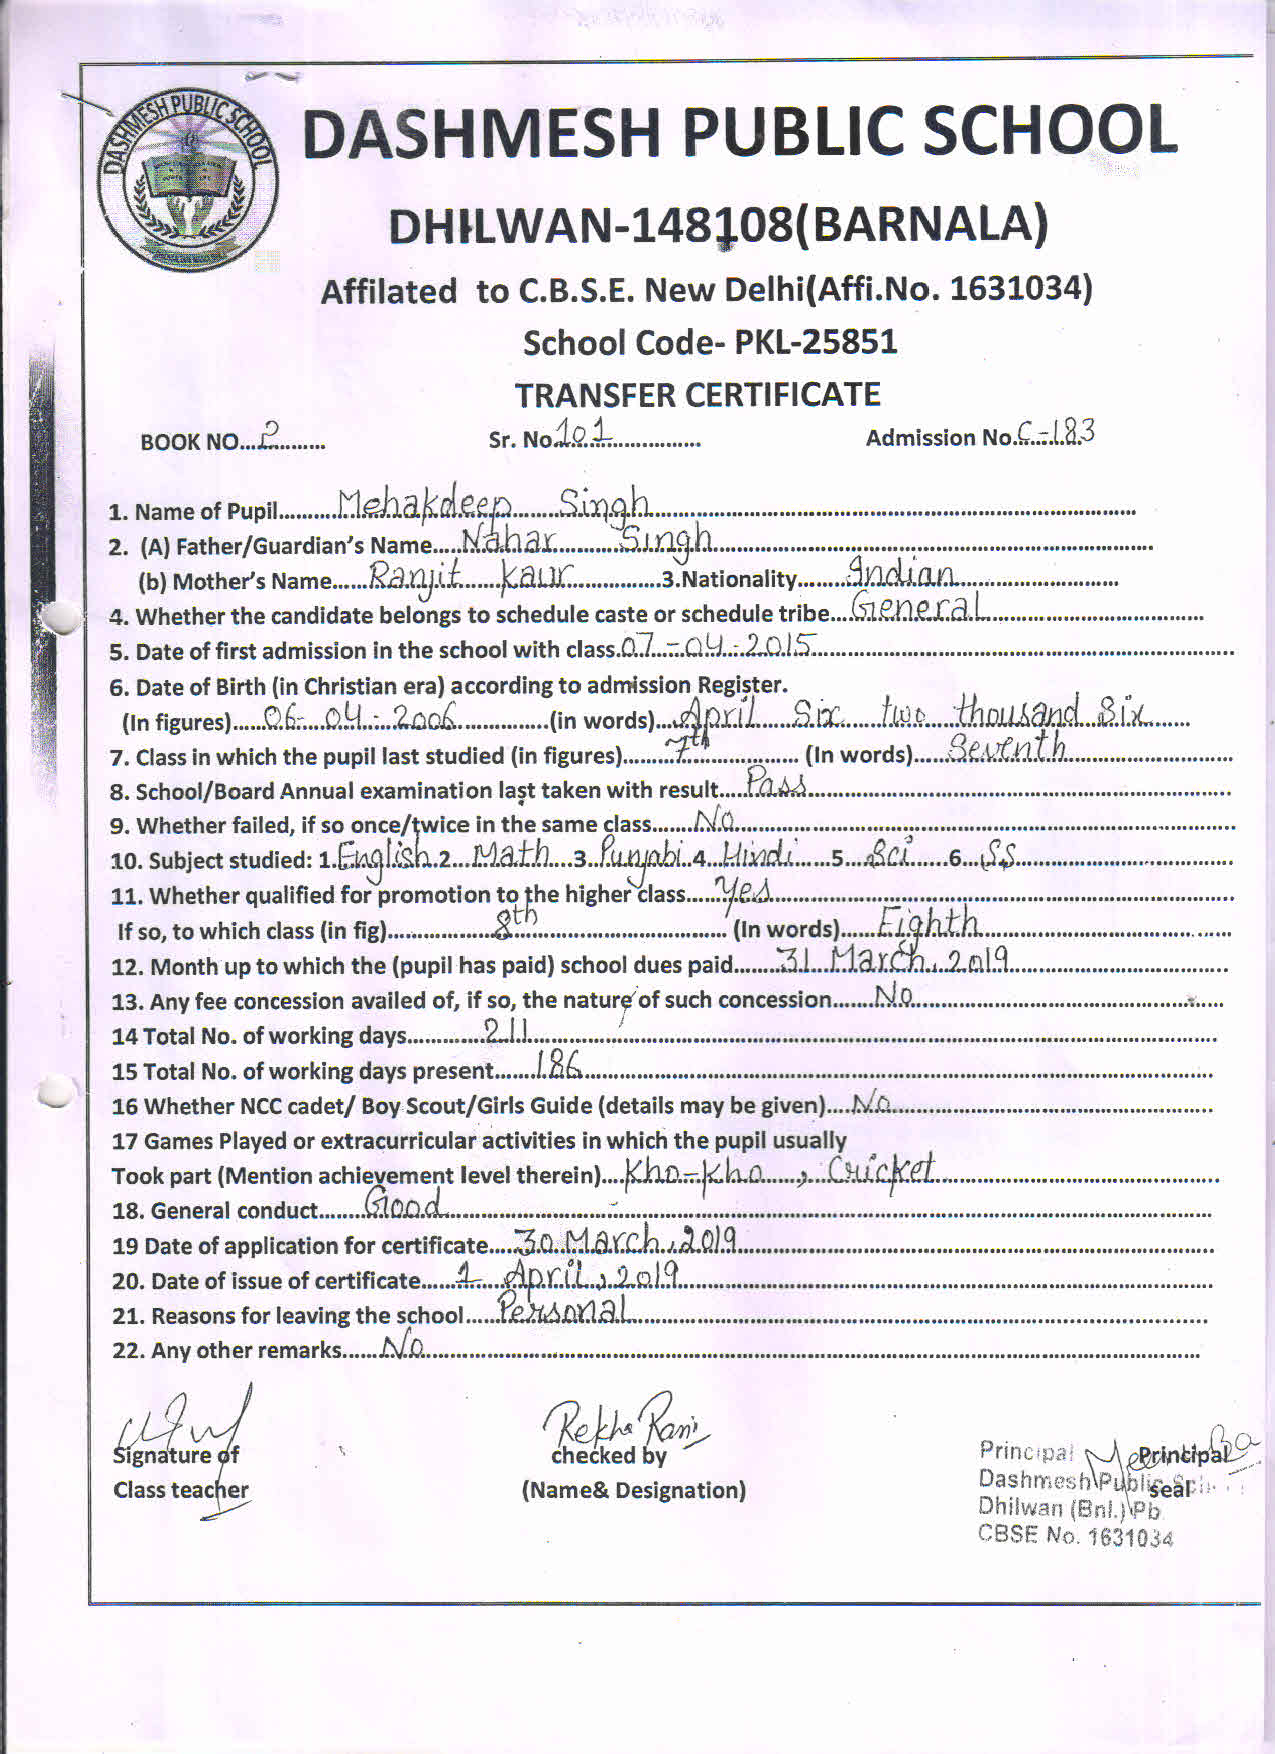 DASHMESH PUBLIC SCHOOL
DASHMESH PUBLIC SCHOOL
DHILWAN-148108(BARNALA)
Affilated to C.B.S.E. New Delhi(Affi.No. 1631034)
School Code- PKL-25851
TRANSFER CERTIFICATE
BOOK NO...2......... Sr. No.101............... Admission No.C-183
1. Name of Pupil..........Mehakdeep Singh
2. (A) Father/Guardian's Name.....Nahar Singh
(b) Mother's Name......Ranjit Kaur..............3.Nationality........Indian
4. Whether the candidate belongs to schedule caste or schedule tribe....General
5. Date of first admission in the school with class.07-04-2015
6. Date of Birth (in Christian era) according to admission Register.
(In figures)......06-04-2006...............(in words)....April Six two thousand Six
7. Class in which the pupil last studied (in figures).........7th.................... (In words)......Seventh
8. School/Board Annual examination last taken with result.....Pass
9. Whether failed, if so once/twice in the same class.......No
10. Subject studied: 1.English.2...Math....3..Punjabi..4..Hindi......5....Sci......6...SS
11. Whether qualified for promotion to the higher class......Yes
If so, to which class (in fig)...................8th.................................... (In words)......Eighth
12. Month up to which the (pupil has paid) school dues paid........31 March, 2019
13. Any fee concession availed of, if so, the nature of such concession.......No
14 Total No. of working days.............211
15 Total No. of working days present.......186
16 Whether NCC cadet/ Boy Scout/Girls Guide (details may be given)....No
17 Games Played or extracurricular activities in which the pupil usually
Took part (Mention achievement level therein)....Kho-Kho, Cricket
18. General conduct........Good
19 Date of application for certificate.....30 March, 2019
20. Date of issue of certificate......1 April, 2019
21. Reasons for leaving the school......Personal
22. Any other remarks......No
Rekha Rani
Signature of checked by Principal Principal
Class teacher (Name& Designation) Dashmesh Public seal
Dhilwan (Bnl.) Pb
CBSE No. 1631034